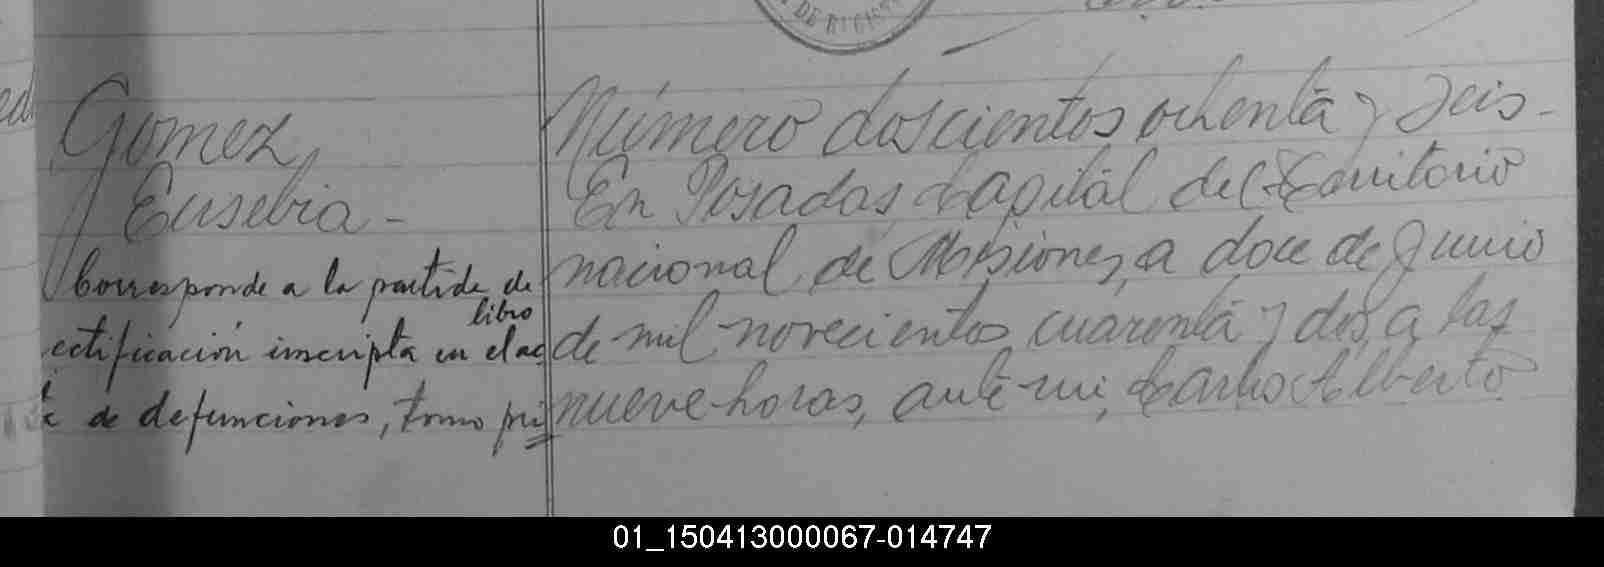 DE REGIST
Gomez
Eusebia -
Corresponde a la partida de
libro
ectificación inscripta en el ac
de defunciones, tomo pri
Número doscientos ochenta y seis -
En Posadas Capital del Territorio
nacional de Misiones, a doce de Junio
de mil novecientos cuarenta y dos, a las
nueve horas, ante mi, Carlos Alberto
01_150413000067-014747